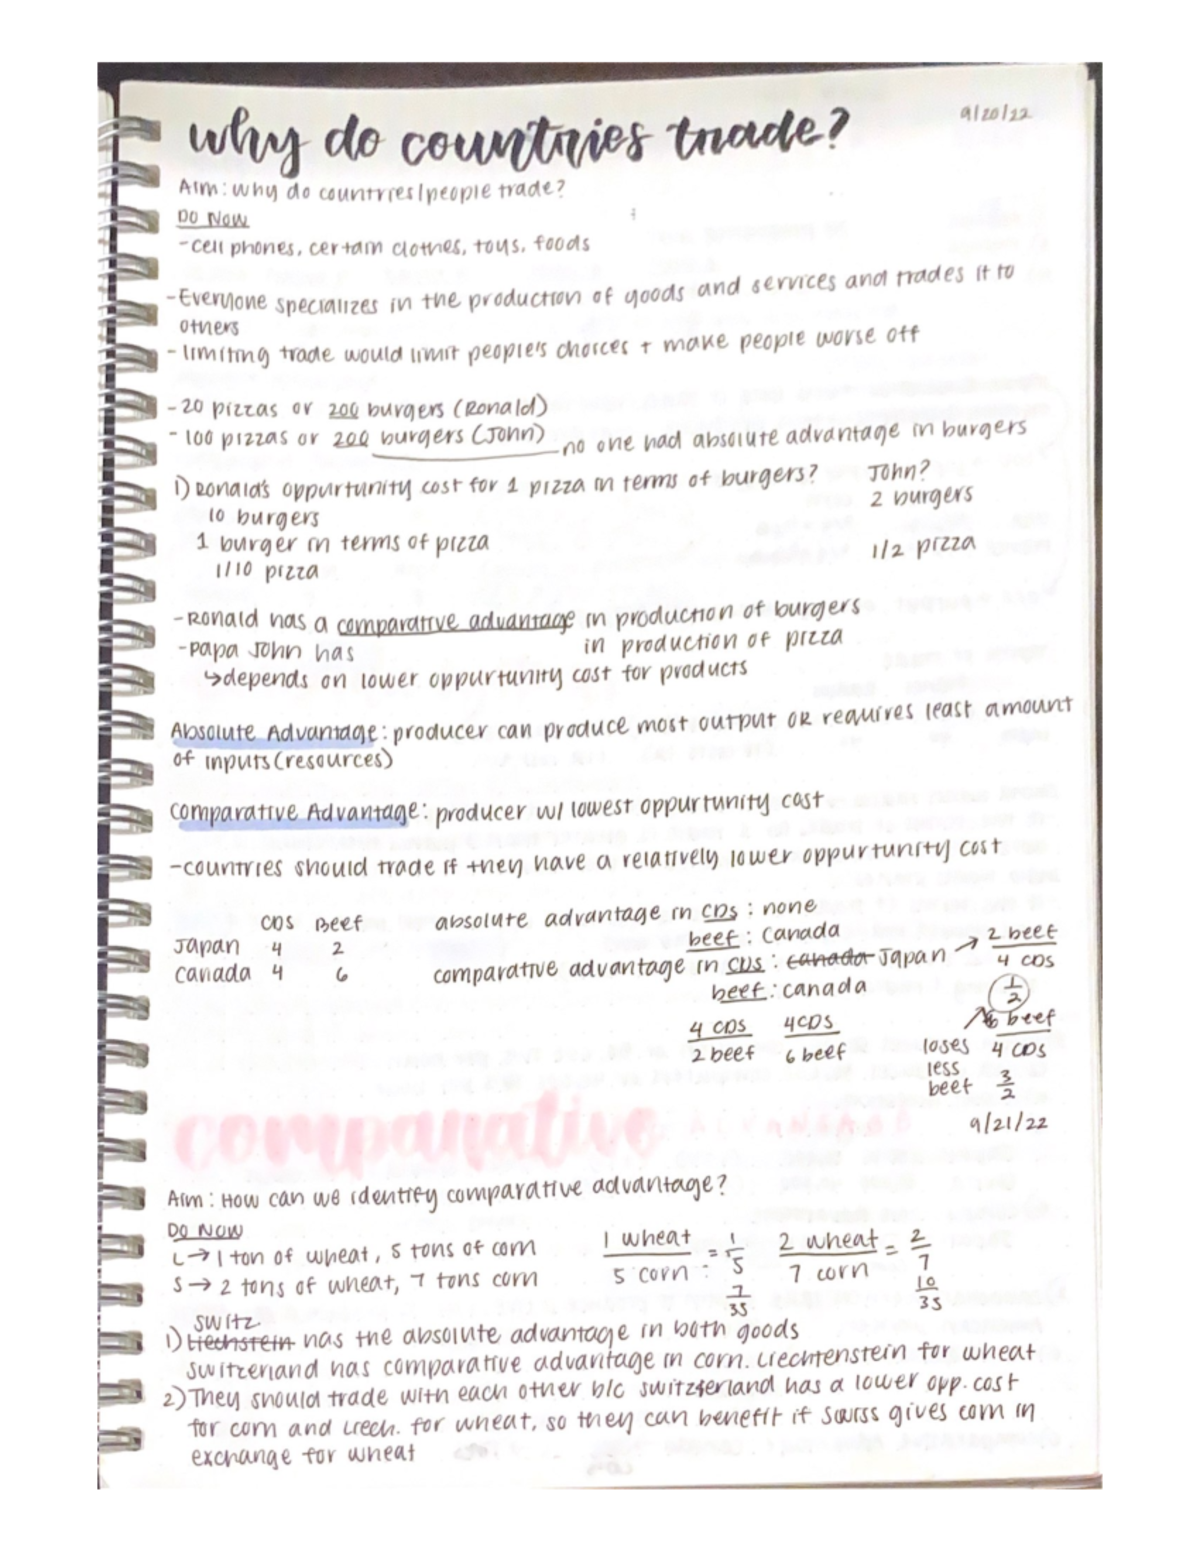 why do countries trade?
9/20/22
Aim: why do countries/people trade?
DO NOW
-cell phones, certain clothes, toys, foods
-Everyone specializes in the production of goods and services and trades it to
others
-limiting trade would limit people's choices + make people worse off
-20 pizzas or 200 burgers (Ronald)
-100 pizzas or 200 burgers (John) no one had absolute advantage in burgers
1) Ronald's oppurtunity cost for 1 pizza in terms of burgers? John?
10 burgers 2 burgers
1 burger in terms of pizza
1/10 pizza 1/2 pizza
-Ronald has a comparative advantage in production of burgers
-Papa John has in production of pizza
↳depends on lower oppurtunity cost for products
Absolute Advantage: producer can produce most output OR requires least amount
of inputs (resources)
Comparative Advantage: producer w/ lowest oppurtunity cost
-countries should trade if they have a relatively lower oppurtunity cost
CDS Beef
Japan 4 2
Canada 4 6
absolute advantage in CDs: none
beef: Canada
comparative advantage in CDs: canada Japan → 2 beef
4 CDs
beef: canada 1/2
4 CDs 4 CDs
2 beef 6 beef
6 beef
loses 4 CDs
less
beef 3/2
9/21/22
comparative ADVANTAGE
Aim: How can we identify comparative advantage?
DO NOW
L→ 1 ton of wheat, 5 tons of corn
S→ 2 tons of wheat, 7 tons corn
1 wheat / 5 corn = 1/5 2 wheat / 7 corn = 2/7
7/35 10/35
switz.
1) Liechstein has the absolute advantage in both goods
Switzerland has comparative advantage in corn. Liechtenstein for wheat
2) They should trade with each other b/c switzerland has a lower opp. cost
for corn and Liech. for wheat, so they can benefit if swiss gives corn in
exchange for wheat